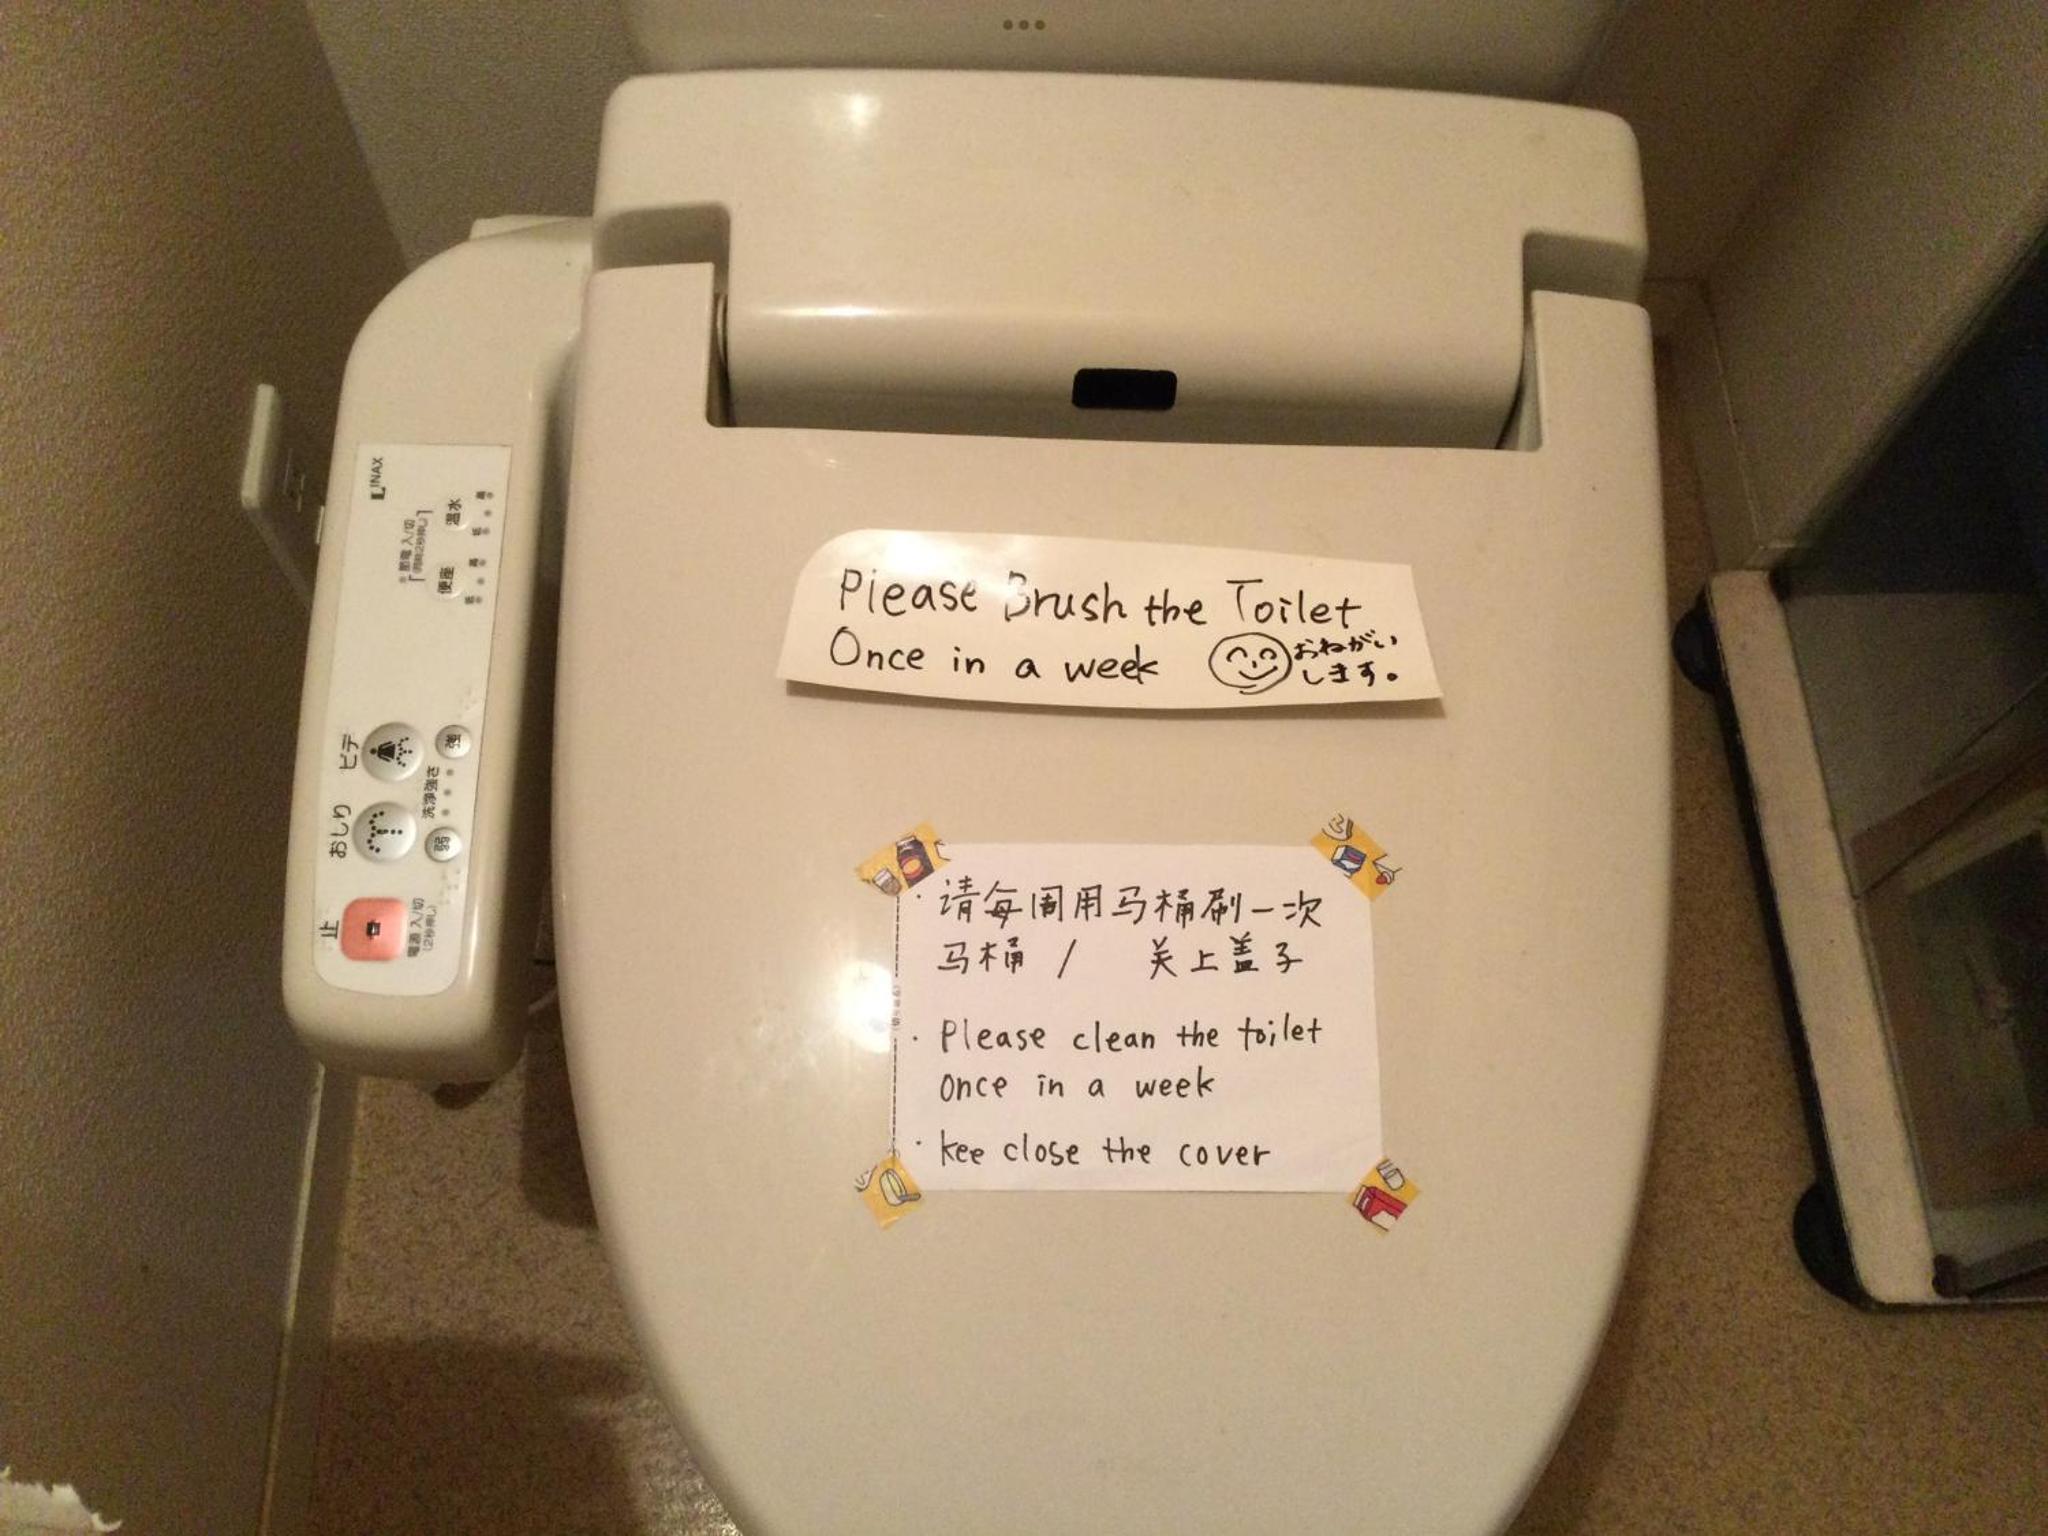 Please Brush the Toilet
Once in a week
おねがい
します。
· 请每周用马桶刷一次
马桶 / 关上盖子
· Please clean the toilet
once in a week
· kee close the cover
INAX
温水
高
低
※節電 入/切
「(同時2秒押し)」
便座
高
低
ビデ
強
洗浄強さ
おしり
弱
止
電源 入/切
(2秒押し)